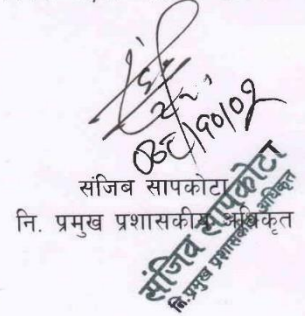 संजिब सापकोटा
नि. प्रमुख प्रशासकीय अधिकृत
संजिब सापकोटा
नि. प्रमुख प्रशासकीय अधिकृत